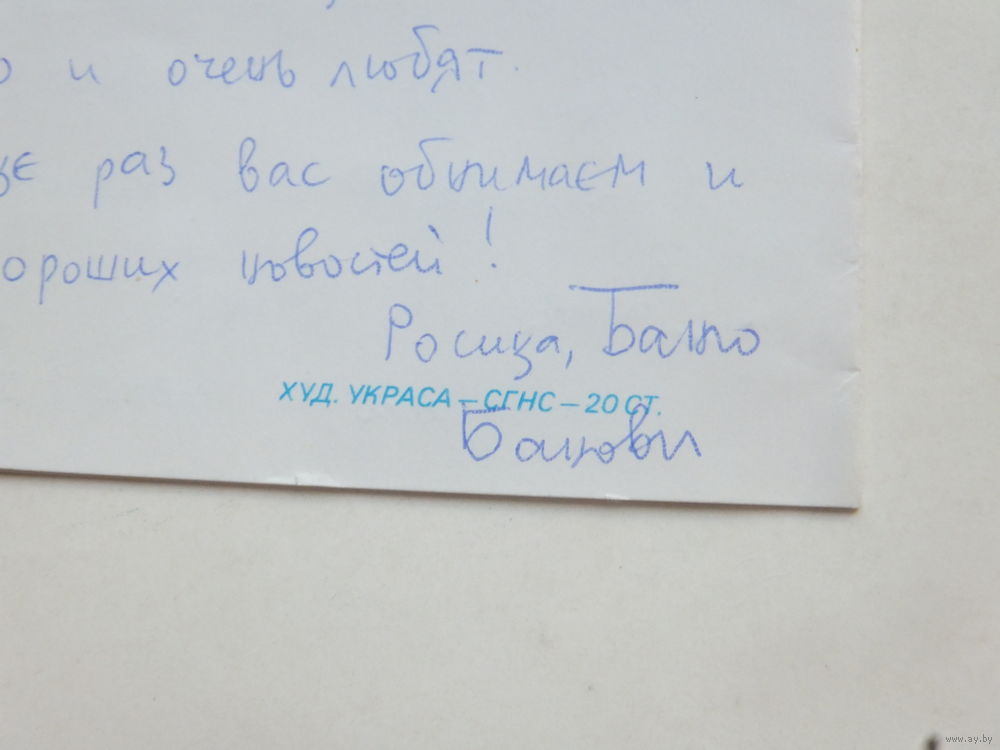 о и очень любят.
ще раз вас обнимаем и
ороших новостей!
Росица, Банко
ХУД. УКРАСА – СГНС – 20 СТ.
Банкови
www.ay.by